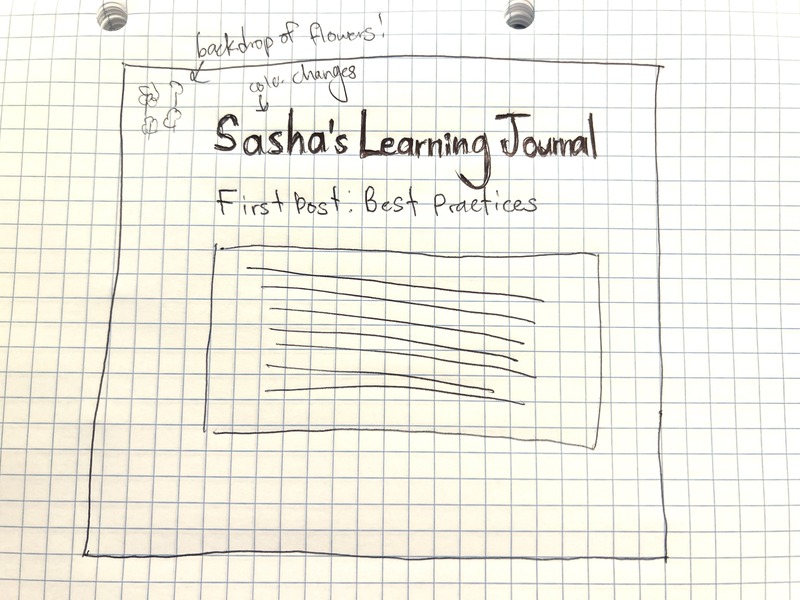 backdrop of flowers!
color changes
Sasha's Learning Journal
First post: Best Practices